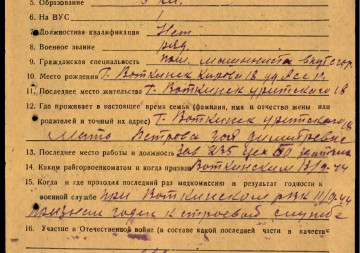 5. Образование 5 кл.
6. На ВУС 1
7. Должностная квалификация Нет
8. Военное звание ряд.
9. Гражданская специальность пом. машиниста
10. Место рождения Г. Воткинск Кирова 18
11. Последнее место жительства Г. Воткинск Урицкого 18
12. Где проживает в настоящее время семья (фамилия, имя и отчество жены или
родителей и точный их адрес) Г. Воткинск Урицкого 18
Мать Петрова
13. Последнее место работы и должность Зав 235 цех
14. Каким райгорвоенкоматом и когда призван Воткинским
15. Когда и где проходил последний раз медкомиссию и результат годности к
военной службе при Воткинском рвк
признан годен к строевой службе
16. Участие в Отечественной войне (в составе какой последней части в качестве